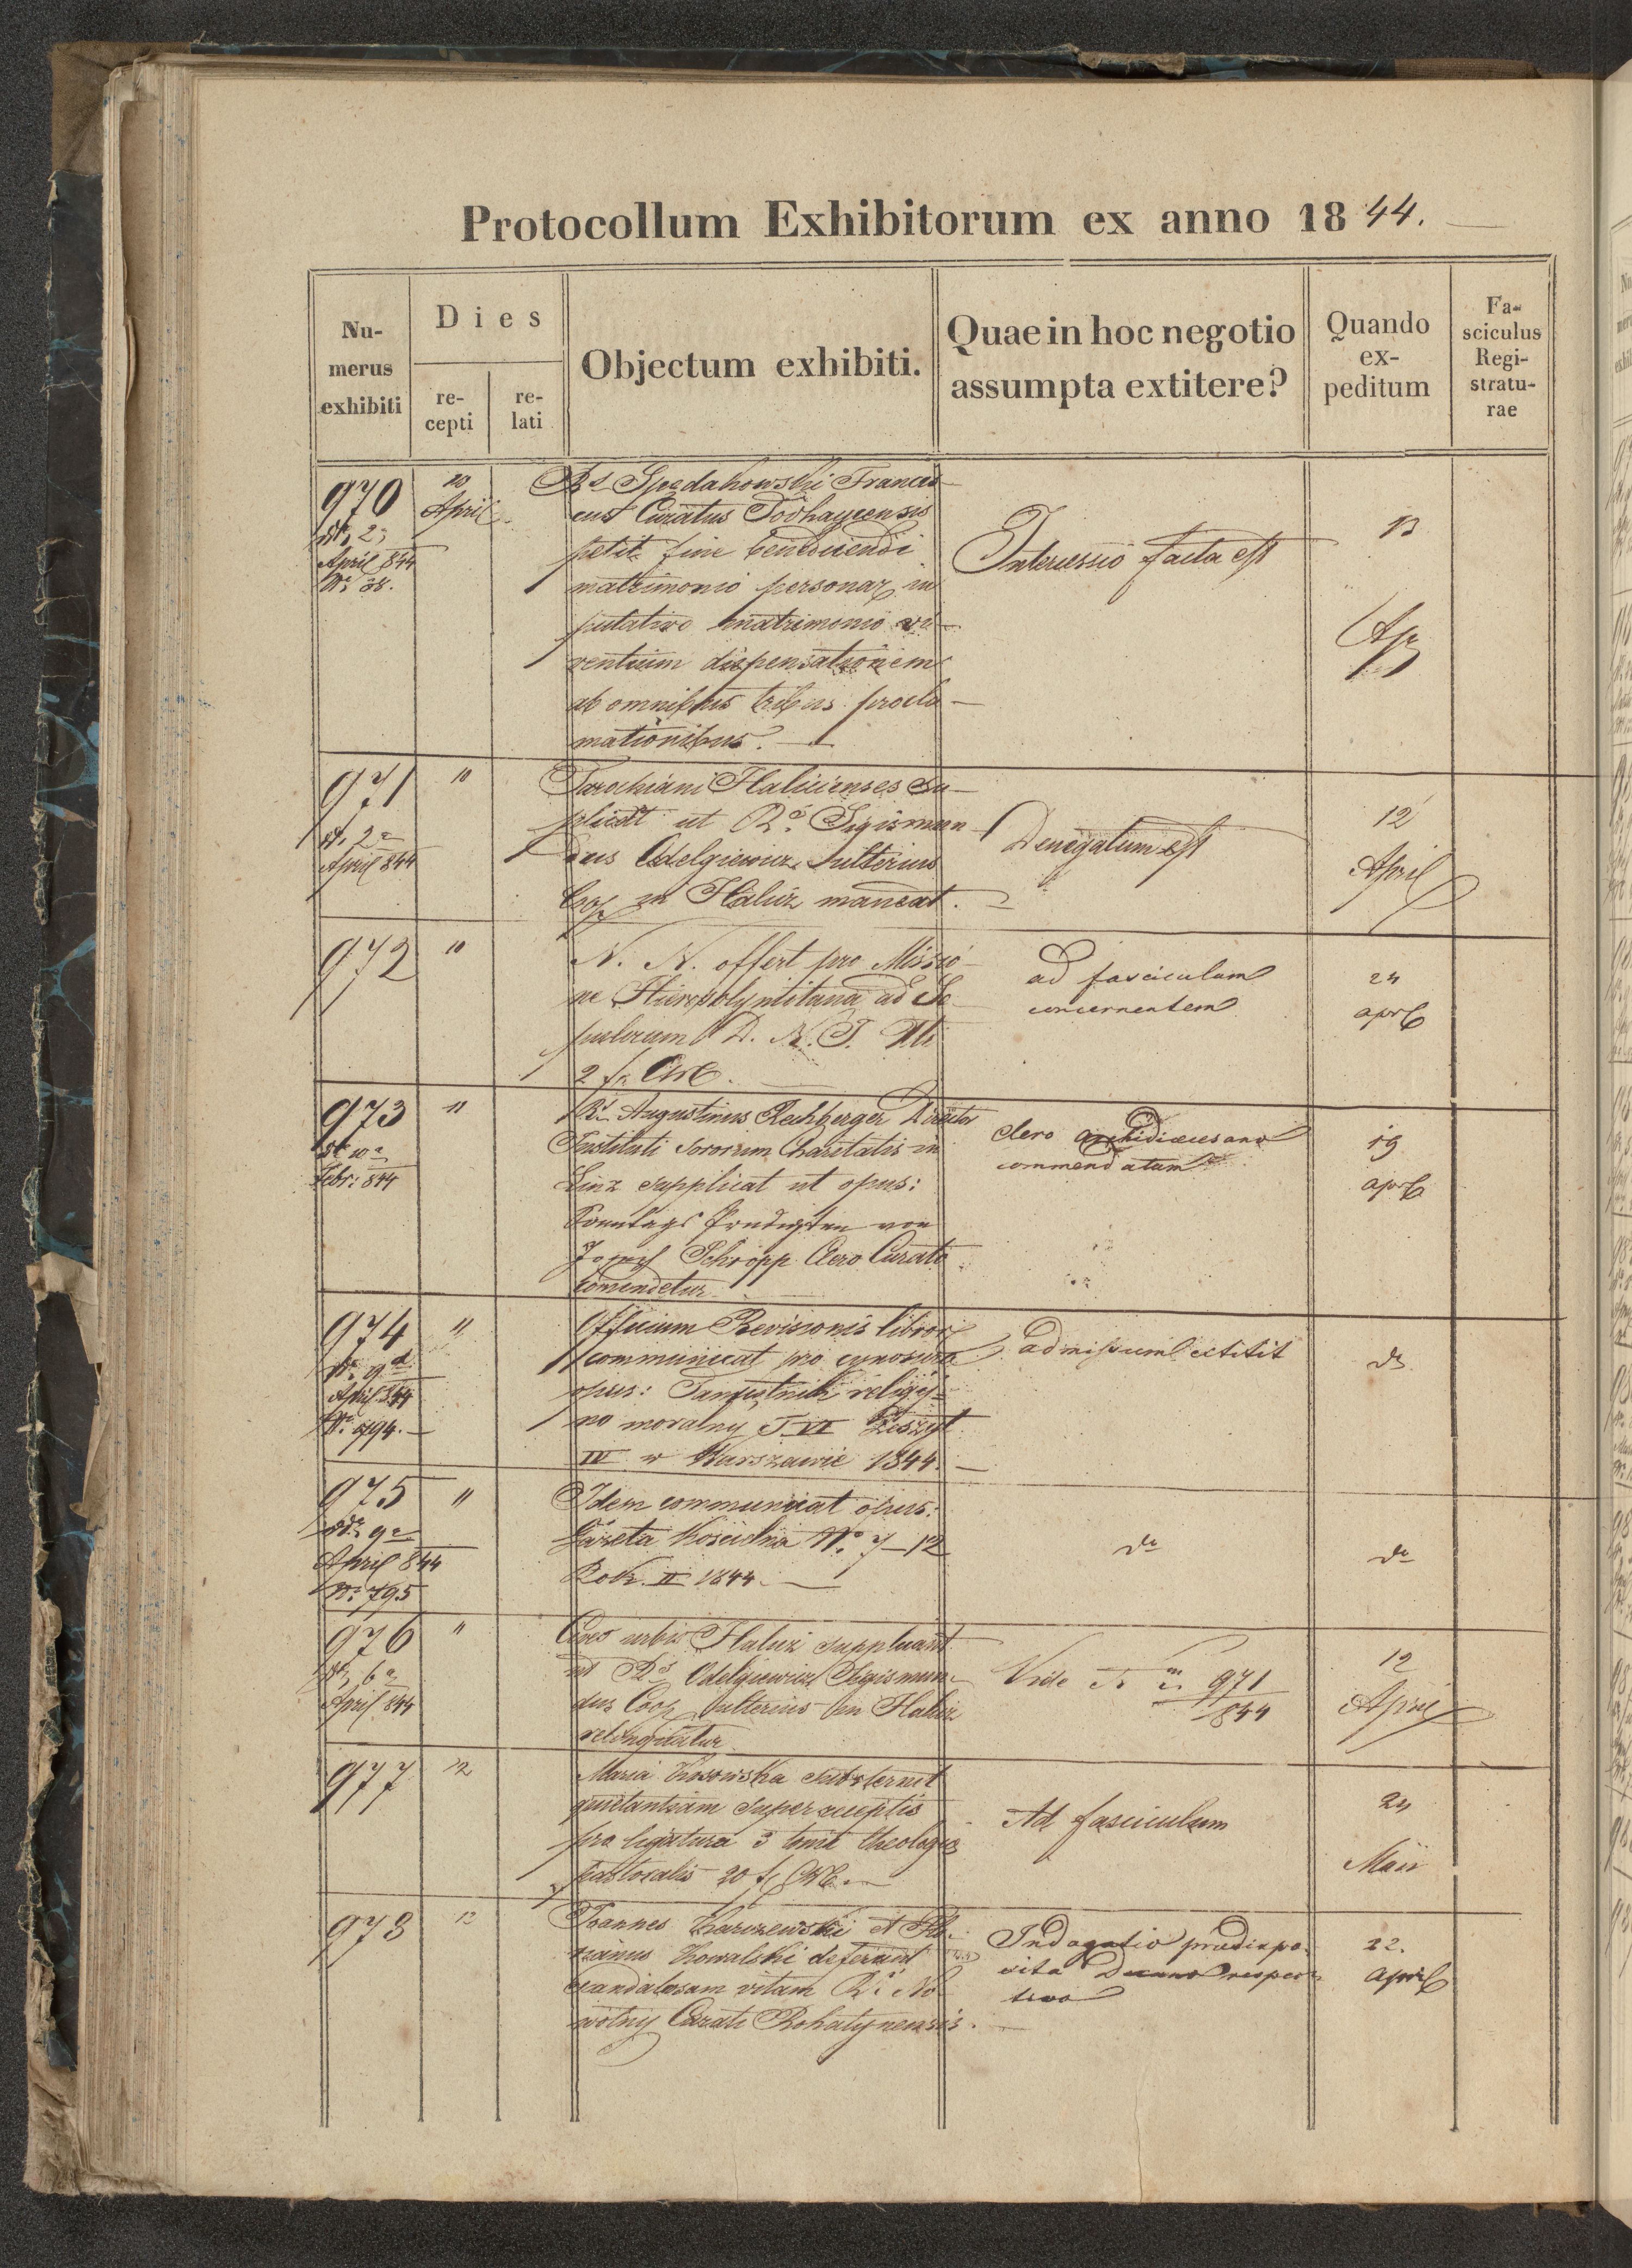 Protocollum Exhibitorum ex anno 1844.
Nu-
merus
exhibiti
Dies
re-
cepti
re-
lati
Objectum exhibiti.
Quae in hoc negotio
assumpta extitere?
Quando
ex-
peditum
Fa-
sciculus
Regi-
stratu-
rae
970
10
April
April 844
Francis
cus Curatus
petit fine benedicendi
matrimonio personar in
putativo matrimonio vi-
ventium dispensationem
ab omnibus tribus procla-
mationibus.
Intercessio facta est
13
Apr
971
10
April 844
Parochiani Halicienses Su-
plicat ut Rd. Sigismun
dus Odelgiewicz ulterius
Coop in Halicz maneat.
Denegatum est
12
April
972
10
N. N. offert pro Missio-
ne Hierosolymitana ad Se-
pulcrum D. N. J. Xti
2 fr CMC.
ad fasciculum
concernentem
24
april
973
11
Febr: 844
Rd Augustinus Rechberger Director
Instituti Sororum Charitatis in
Linz supplicat ut opus:
Sonntags Predigten von
Joseph Schropp Clero Curato
comendetur
Clero archidioecesano
commendatum
19
april
974
11
April 844
No 794.
Officium Revisionis libror
communicat pro cynosura
opus: Pamiętnik religij-
no moralny T. VI Zeszyt
III w Warszawie 1844.
admissum extitit
do
975
11
April 844
No 795
Idem communicat opus:
Gazeta Kościelna No. 7-12
Rok. II 1844.
do
do
976
11
April 844
Cives urbis Halicz supplicant
ut Rd Odelgiewicz Sigismun-
dus Coop ulterius in Halicz
relinquatur
Vide Num 971
844
12
April
977
12
Maria substernit
quietantiam super acceptis
pro ligatura 3 tomis theologiae
pastoralis 20 f CMC.
Ad fasciculum
24
Maii
978
12
Joannes et Flo-
rianus Kowalski deferunt
scandalosam vitam Rd. No
wotny Curati Rohatynensis.
Indagatio praedispo-
sita Decano respec-
tivo
22.
april